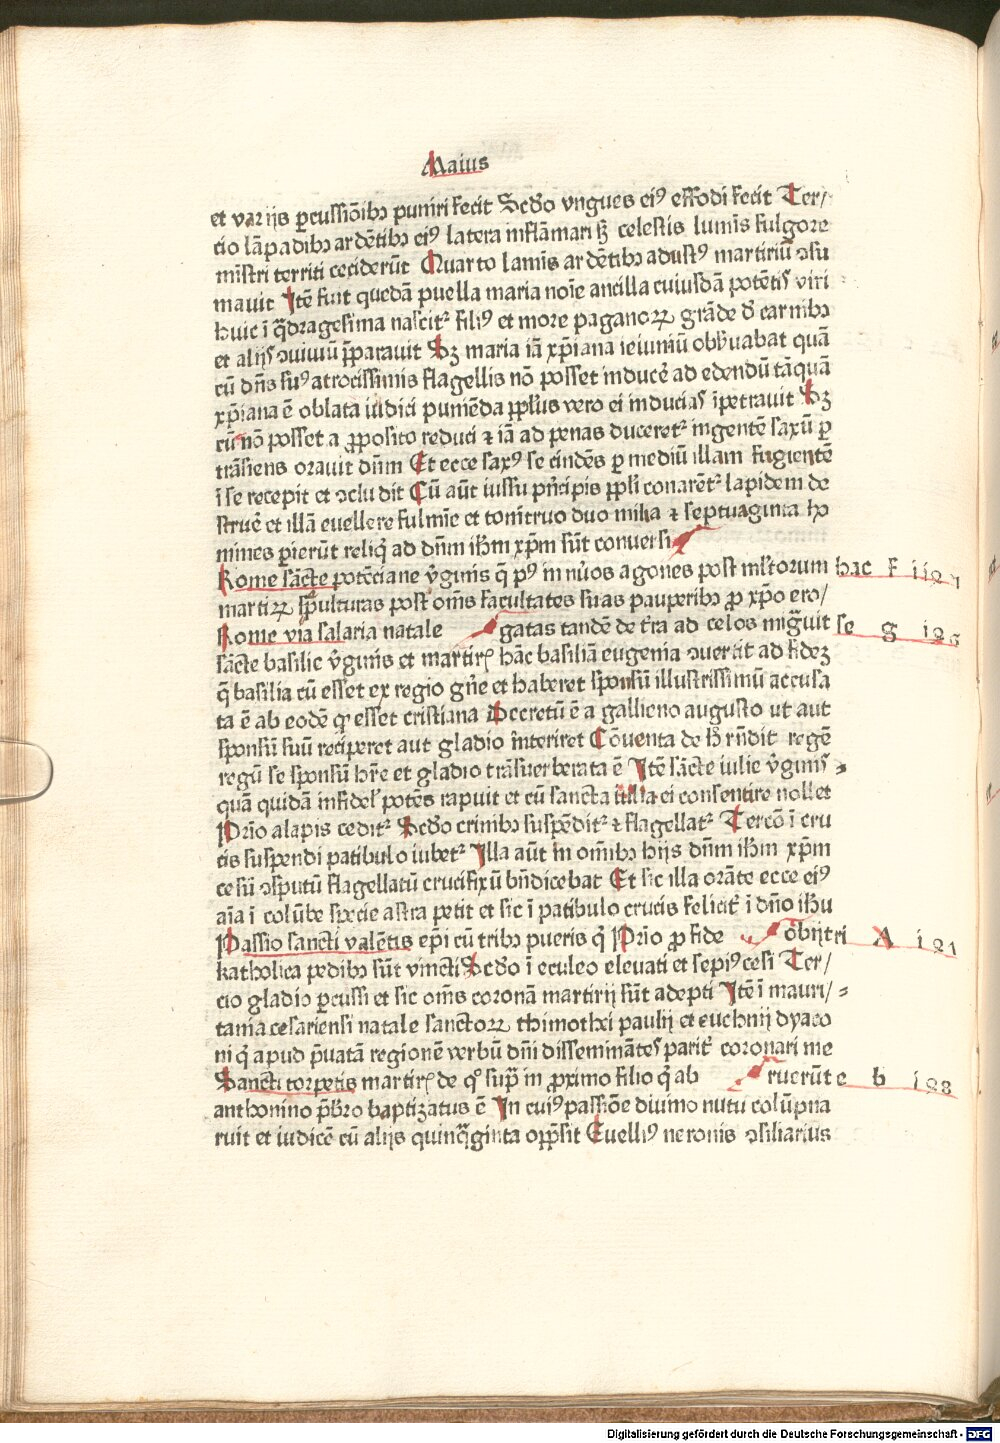 Maius
et varijs ꝑcussiõibꝫ puniri fecit Scđo vngues eiꝰ effodi fecit Ter/
cio lãpadibꝫ ardẽtibꝫ eiꝰ latera inflãmari sꝫ celestis lumĩs fulgore
mĩstri territi ceciderũt Quarto lamĩs ardẽtibꝫ adustꝰ martiriũ ꝯsu
mavit Itẽ fuit quedã puella maria noĩe ancilla cuiusdã potẽtis viri
huic ĩ q̃dragesima nascit᷑ filiꝰ et more paganoꝝ grãde đ carnibꝫ
et alijs ꝯuiuiũ p̃paravit Sꝫ maria iã xp̃iana ieiuniũ obẜuabat quã
cũ dñs suꝰ atrocissimis flagellis nõ posset inducẽ ad edendũ tãquã
xp̃iana ẽ oblata iudici puniẽda pp̃lus vero ei inducias ĩpetravit Sꝫ
cũ nõ posset a ꝓposito reduci ⁊ iã ad penas duceret᷑ ingentẽ saxũ ꝑ
trãsiens oravit dñm Et ecce saxꝰ se cindẽs ꝑ mediũ illam fugientẽ
ĩ se recepit et ꝯcludit Cũ aũt iussu pñcipis pp̃li conarẽt᷑ lapidem de
struẽ et illã evellere fulmĩe et tonitruo duo milia ⁊ septuaginta ho
nimes ꝑierũt reliq̃ ad dñm ihm xp̃m sũt conuersi
Rome sãcte potẽciane ṽginis q̃ pꝰ innũos agones post mĩstorum hac F ii 19
martiꝝ sepulturas post om̃s facultates suas pauperibꝫ ꝓ xp̃o ero/
Rome via salaria natale gatas tandẽ de tr̃a ad celos migᷓuit se g i 26
sãcte basilie ṽginis et martirꝭ hãc basiliã eugenia ꝯuertit ad fideꝫ
q̃ basilia cũ esset ex regio gñe et haberet sponsũ illustrissimũ accusa
ta ẽ ab eodẽ ꝙ esset cristiana Decretũ ẽ a gallieno augusto ut aut
sponsũ suũ reciperet aut gladio ĩnteriret Cõventa de ħ rñdit regẽ
regũ se sponsũ hr̃e et gladio trãsuerberata ẽ Itẽ sãcte iulie ṽginis
quã quidã infidelꝭ potẽs rapuit et cũ sancta iulia ei consentire nollet
Prĩo alapis cedit᷑ Scđo crinibꝫ suspẽdit᷑ ⁊ flagellat᷑ Tercõ ĩ cru
cis suspendi patibulo iubet᷑ Illa aũt in om̃ibꝫ hijs dñm ihm xp̃m
cesũ ꝯsputũ flagellatũ crucifixũ bñdicebat Et sic illa orãte ecce eiꝰ
aĩa ĩ colũbe specie astra petit et sic ĩ patibulo crucis felicit̃ ĩ dño ihu
Passio sancti valẽtis ep̃i cũ tribꝫ pueris q̃ Prĩo ꝓ fide obijt ri A i 21
katholica pedibꝫ sũt vincti Scđo ĩ eculeo elevati et sepiꝰ cesi Ter/
cio gladio ꝑcussi et sic om̃s coronã martirij sũt adepti Itẽ ĩ mauri/
tania cesariensi natale sanctoꝝ thimothei paulij et euchnij dyaco
ni q̃ apud p̃uatã regionẽ verbũ dñi disseminãtes parit̃ coronari me
Sancti torpetis martirꝭ de qͦ supᷓ in ꝓximo filio q̃ ab ruerũt e b i 28
anthonino p̃bꝛo baptizatus ẽ In cuiꝰ passiõe divino nutu colũpna
ruit et iudicẽ cũ alijs quinqᷓginta opp̃sit Euelliꝰ neronis ꝯsiliarius
Digitalisierung gefördert durch die Deutsche Forschungsgemeinschaft - DFG